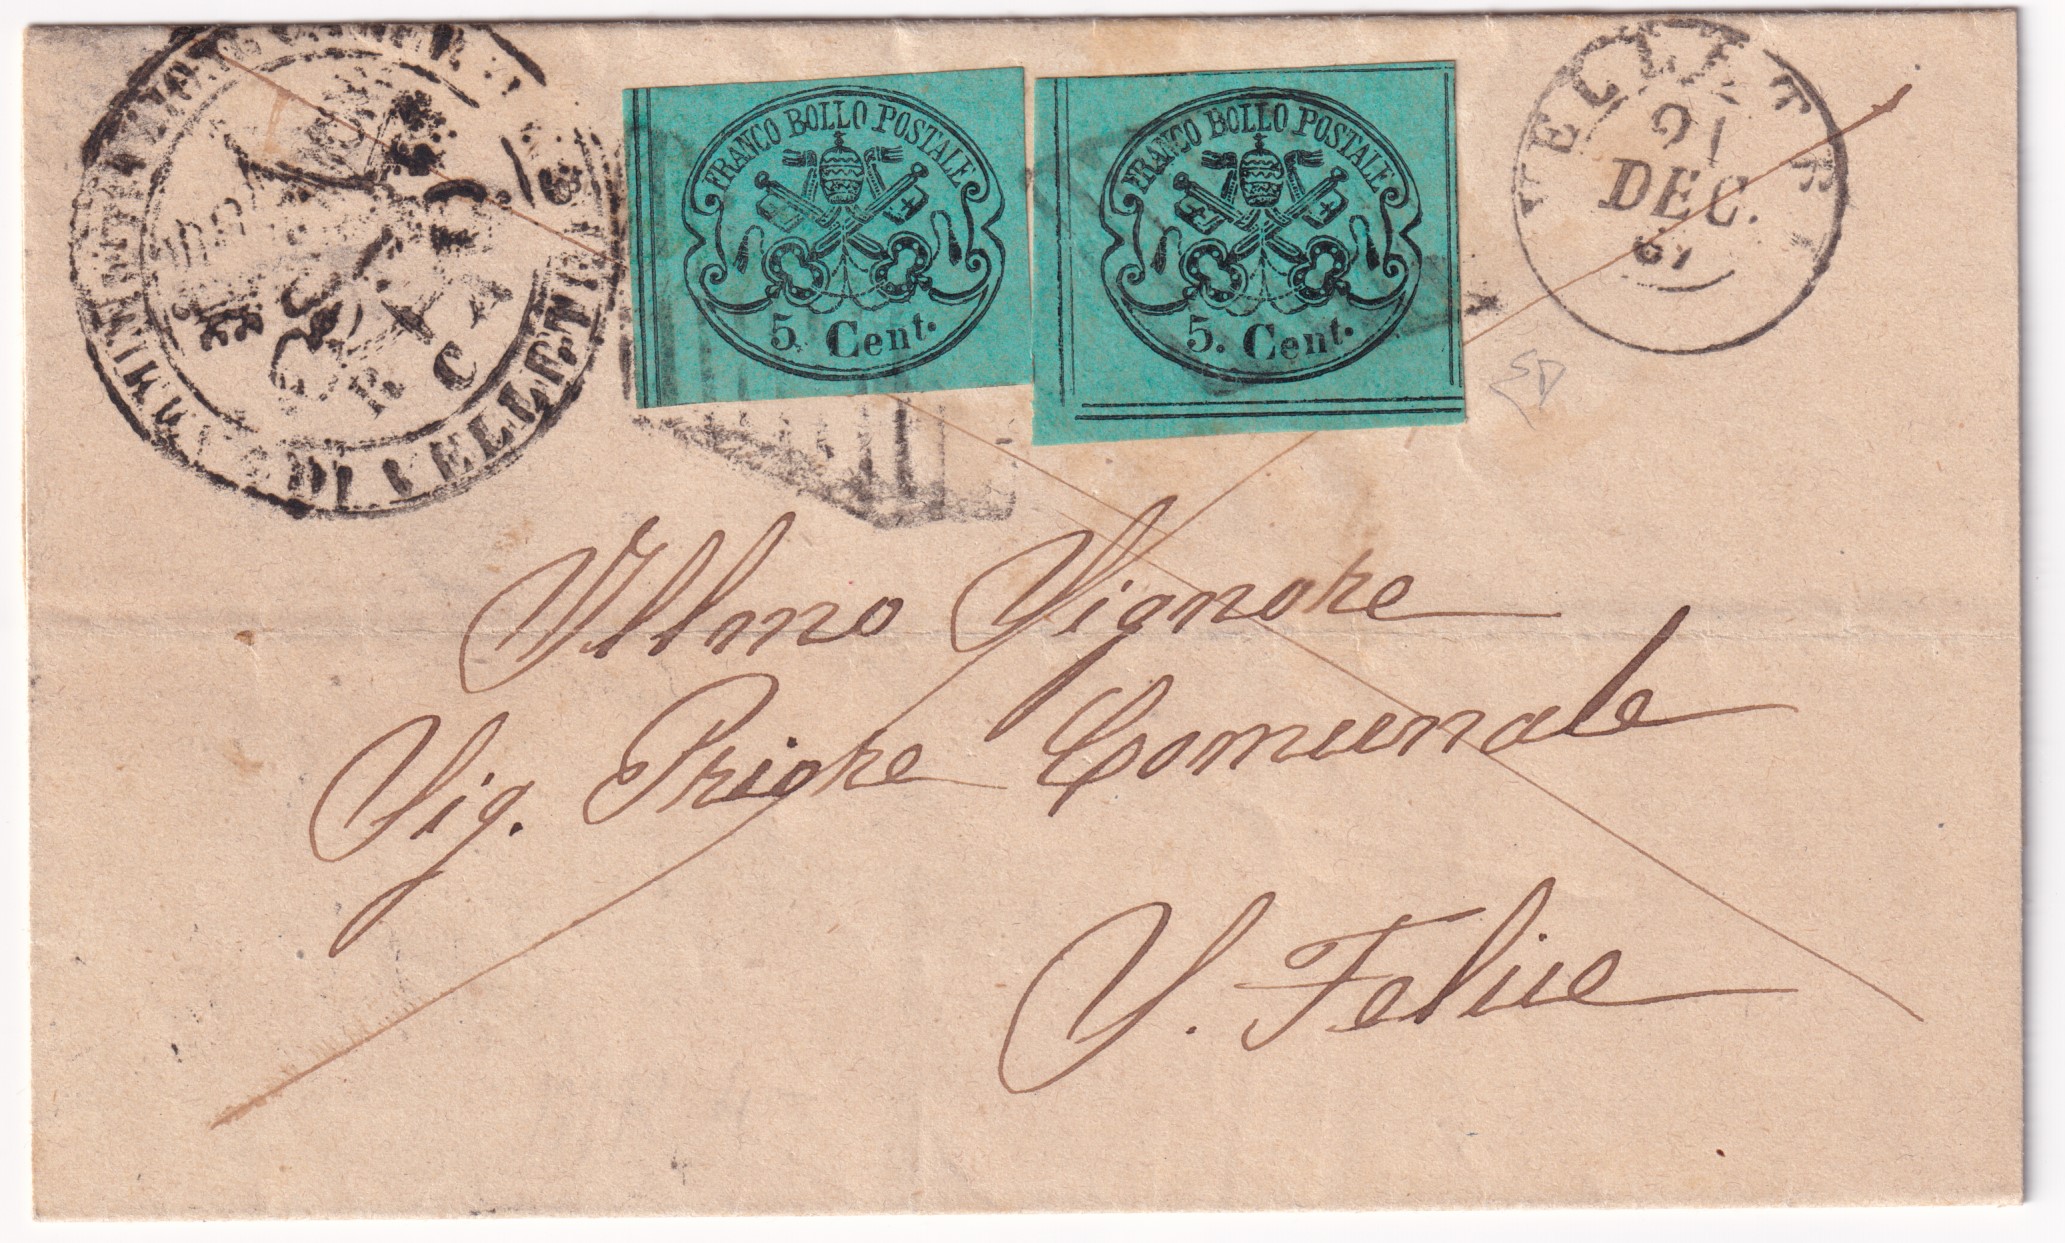 FRANCO BOLLO POSTALE
5 Cent.
FRANCO BOLLO POSTALE
5. Cent.
VELLETRI
21
DEC.
67
DI VELLETRI
R C A
SD
Illmo Signore
Sig. Priore Comunale
S. Felice